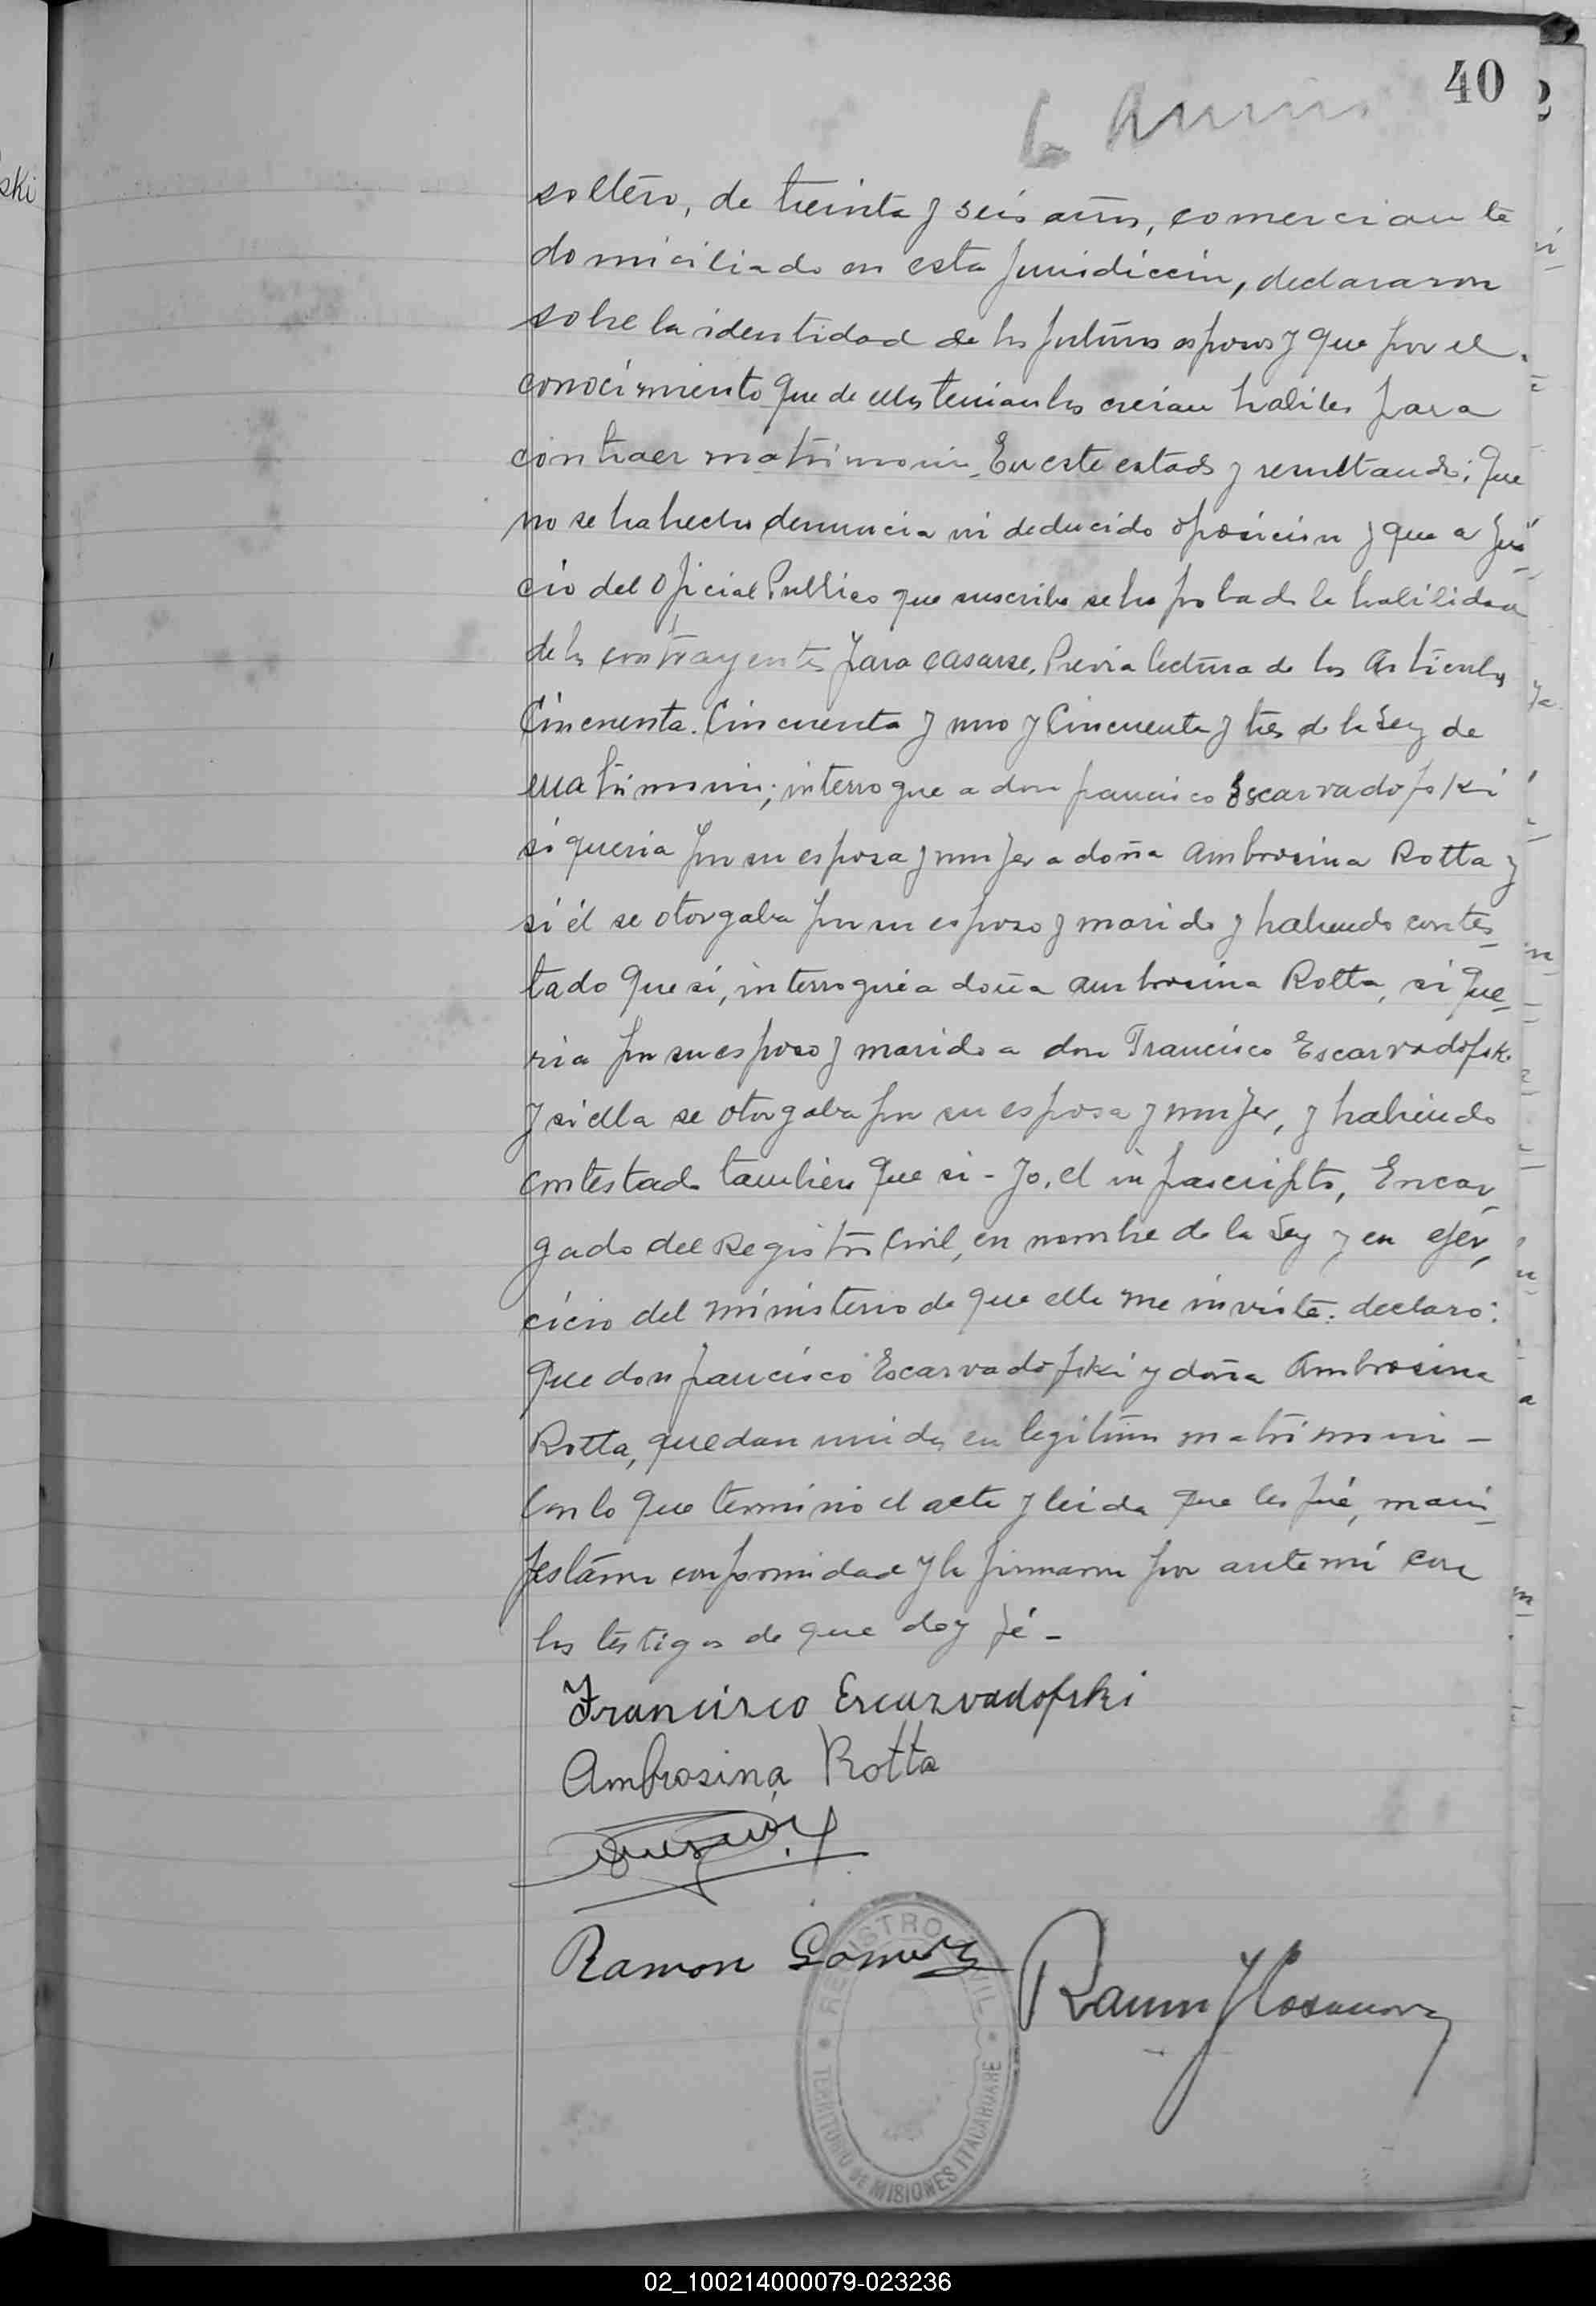 40
ski
soltero, de treinta y seis años, comerciante
domiciliado en esta jurisdiccion, declararon
sobre la identidad de los futuros esposos y que por el
conocimiento que de ellos tenian los creian habiles para
contraer matrimonio. En este estado y resultando: que
no se ha hecho denuncia ni deducido oposicion y que a jui-
cio del Oficial Publico que suscribe se ha probado la habilidad
de los contrayentes para casarse. Previa lectura de los Articulos
Cincuenta. Cincuenta y uno y Cincuenta y tres de la Ley de
matrimonio; interrogue a don francisco Escarvadofski
si queria por su esposa y mujer a doña Ambrosina Rotta y
si él se otorgaba por su esposo y marido y habiendo contes-
tado que si, interrogué a doña Ambrosina Rotta, si que-
ria por su esposo y marido a don Francisco Escarvadofski
y si ella se otorgaba por su esposa y mujer, y habiendo
contestado tambien que si - Yo, el infrascripto, Encar-
gado del Registro Civil, en nombre de la Ley y en ejer-
cicio del ministerio de que ella me inviste: declaro:
que don francisco Escarvadofski y doña Ambrosina
Rotta, quedan unidos en legitimo matrimonio -
Con lo que terminó el acta y leida que les fué, mani-
festaron conformidad y la firmaron por ante mi con
los testigos de que doy fé -
Francisco Escarvadofski
Ambrosina Rotta
Ramon Gomez
Ramon Casanova
REGISTRO CIVIL
TERRITORIO DE MISIONES ITACARUARE
02_100214000079-023236